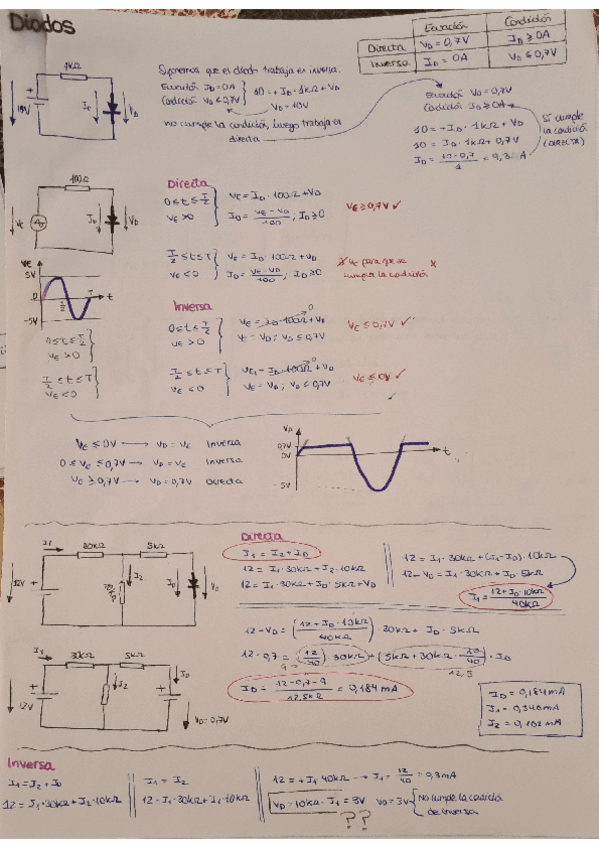 Diodos
Ecuación Condición
Directa V_D = 0,7V I_D ≥ 0A
Inversa I_D = 0A V_D ≤ 0,7V
1kΩ
10V
I_D
V_D
Suponemos que el diodo trabaja en inversa.
Ecuación I_D = 0A
Condición V_D ≤ 0,7V
10 = + I_D · 1kΩ + V_D
V_D = 10V
no cumple la condición, luego trabaja en
directa
Ecuación V_D = 0,7V
Condición I_D ≥ 0A
10 = + I_D · 1kΩ + V_D
10 = I_D · 1kΩ + 0,7V
I_D = (10 - 0,7)/1 = 9,3 A
Sí cumple
la condición
(DIRECTA)
100Ω
V_E
I_D
V_D
Directa
0 ≤ t ≤ T/2
V_E > 0
V_E = I_D · 100Ω + V_D
I_D = (V_E - V_D)/100 ; I_D ≥ 0
V_E ≥ 0,7V ✓
T/2 ≤ t ≤ T
V_E < 0
V_E = I_D · 100Ω + V_D
I_D = (V_E - V_D)/100 ; I_D ≥ 0
V_E para que se
cumpla la condición
V_E
5V
0
-5V
T/2
T
t
0 ≤ t ≤ T/2
V_E > 0
T/2 ≤ t ≤ T
V_E < 0
Inversa
0 ≤ t ≤ T/2
V_E > 0
V_E = I_D · 100Ω + V_D
0
V_E = V_D ; V_D ≤ 0,7V
V_E ≤ 0,7V ✓
T/2 ≤ t ≤ T
V_E < 0
V_E = I_D · 100Ω + V_D
0
V_E = V_D ; V_D ≤ 0,7V
V_E ≤ 0V ✓
V_E ≤ 0V → V_D = V_E Inversa
0 ≤ V_E ≤ 0,7V → V_D = V_E Inversa
V_E ≥ 0,7V → V_D = 0,7V Directa
V_D
0,7V
0V
-5V
t
I_1
30kΩ
5kΩ
12V
I_2
I_D
Directa
I_1 = I_2 + I_D
12 = I_1 · 30kΩ + I_2 · 10kΩ
12 = I_1 · 30kΩ + I_D · 5kΩ + V_D
12 = I_1 · 30kΩ + (I_1 - I_D) · 10kΩ
12 - V_D = I_1 · 30kΩ + I_D · 5kΩ
I_1 = (12 + I_D · 10kΩ)/40kΩ
12 - V_D = ((12 + I_D · 10kΩ)/40kΩ) · 30kΩ + I_D · 5kΩ
12 - 0,7 = (12/40) · 30kΩ + (5kΩ + 30kΩ · 10/40) · I_D
9
12,5
I_D = (12 - 0,7 - 9)/12,5kΩ = 0,184 mA
I_1
30kΩ
5kΩ
12V
I_2
I_D
V_D = 0,7V
I_D = 0,184 mA
I_1 = 0,346 mA
I_2 = 0,162 mA
Inversa
I_1 = I_2 + I_D
12 = I_1 · 30kΩ + I_2 · 10kΩ
I_1 = I_2
12 = I_1 · 30kΩ + I_1 · 10kΩ
12 = + I_1 · 40kΩ → I_1 = 12/40 = 0,3 mA
V_D = 10k · I_1 = 3V
V_D = 3V
No cumple la condición
de inversa
??